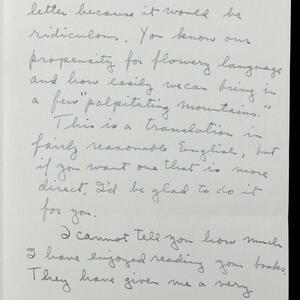 letter because it would be
ridiculous. You know our
propensity for flowery language
and how easily we can bring in
a few "palpitating mountains."
This is a translation in
fairly reasonable English, but
if you want one that is more
direct, I'd be glad to do it
for you.
I cannot tell you how much
I have enjoyed reading your books.
They have given me a very